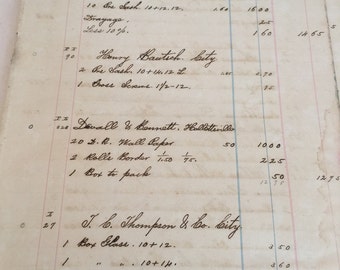 10 Prs Sash 10+12.12. 1.60 1600
Drayage 25
Less 10% 1 60 14 65
XX
90 Henry Bautsch. City
2 Prs Sash. 10+14.12 L.
1 Gross Screws 1 1/2-12. 25
XX
228 Duvall & Bennett. Hallettsville
20 D.R. Wall Paper 50 1000
2 Rolls Border 1.50 1/75. 225
1 Box to pack 50
X
27 T. C. Thompson & Co. City
1 Box Glass. 10+12. 3 50
1 " " 10+14. 3 60